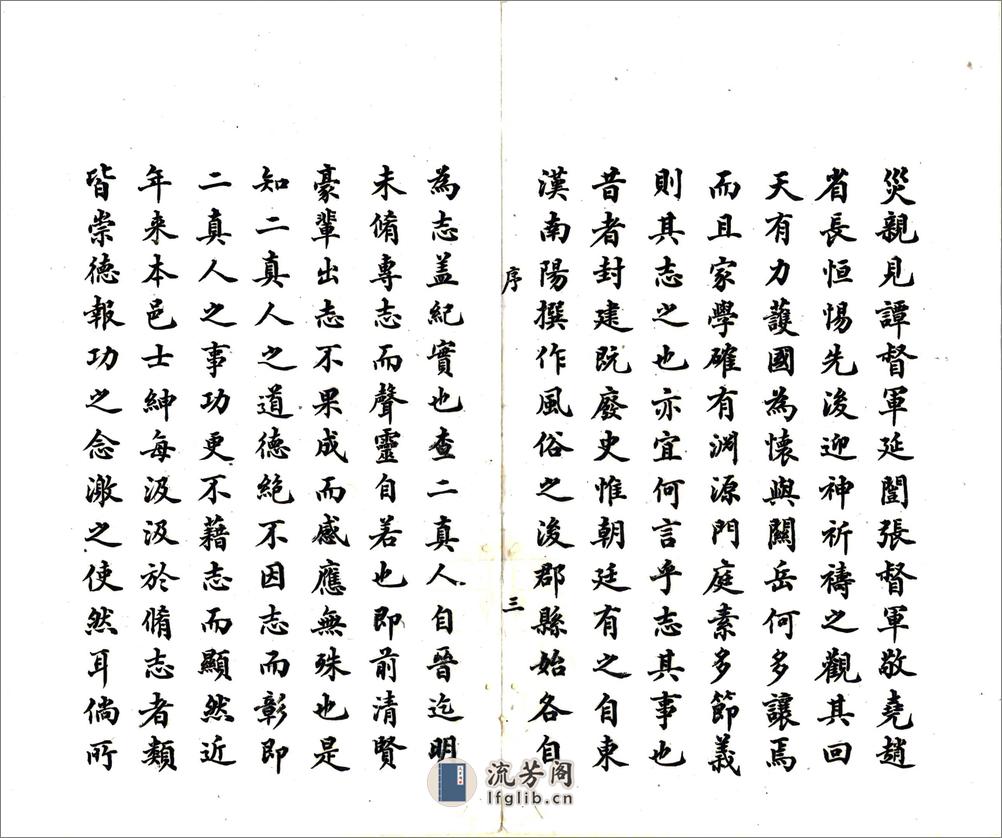 災親見譚督軍延闓張督軍敬堯趙
省長恒惕先後迎神祈禱之觀其回
天有力護國為懷與關岳何多讓焉
而且家學確有淵源門庭素多節義
則其志之也亦宜何言乎志其事也
昔者封建既廢史惟朝廷有之自東
漢南陽撰作風俗之後郡縣始各自
序
三
為志蓋紀實也查二真人自晉迄明
未脩專志而聲靈自若也即前清賢
豪輩出志不果成而感應無殊也是
知二真人之道德絕不因志而彰即
二真人之事功更不藉志而顯然近
年來本邑士紳每汲汲於脩志者類
皆崇德報功之念激之使然耳倘所
流芳阁
lfglib.cn